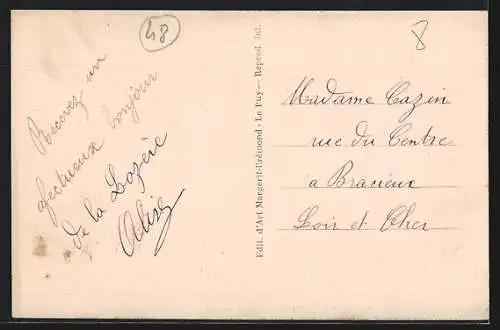 48
8
Recevez un
afectueux bonjour
de la Lozère
Edit. d'Art Margerit-Brémond - Le Puy — Reprod. Int.
Madame Cazin
rue du Centre
a Bracieux
Loir et Cher